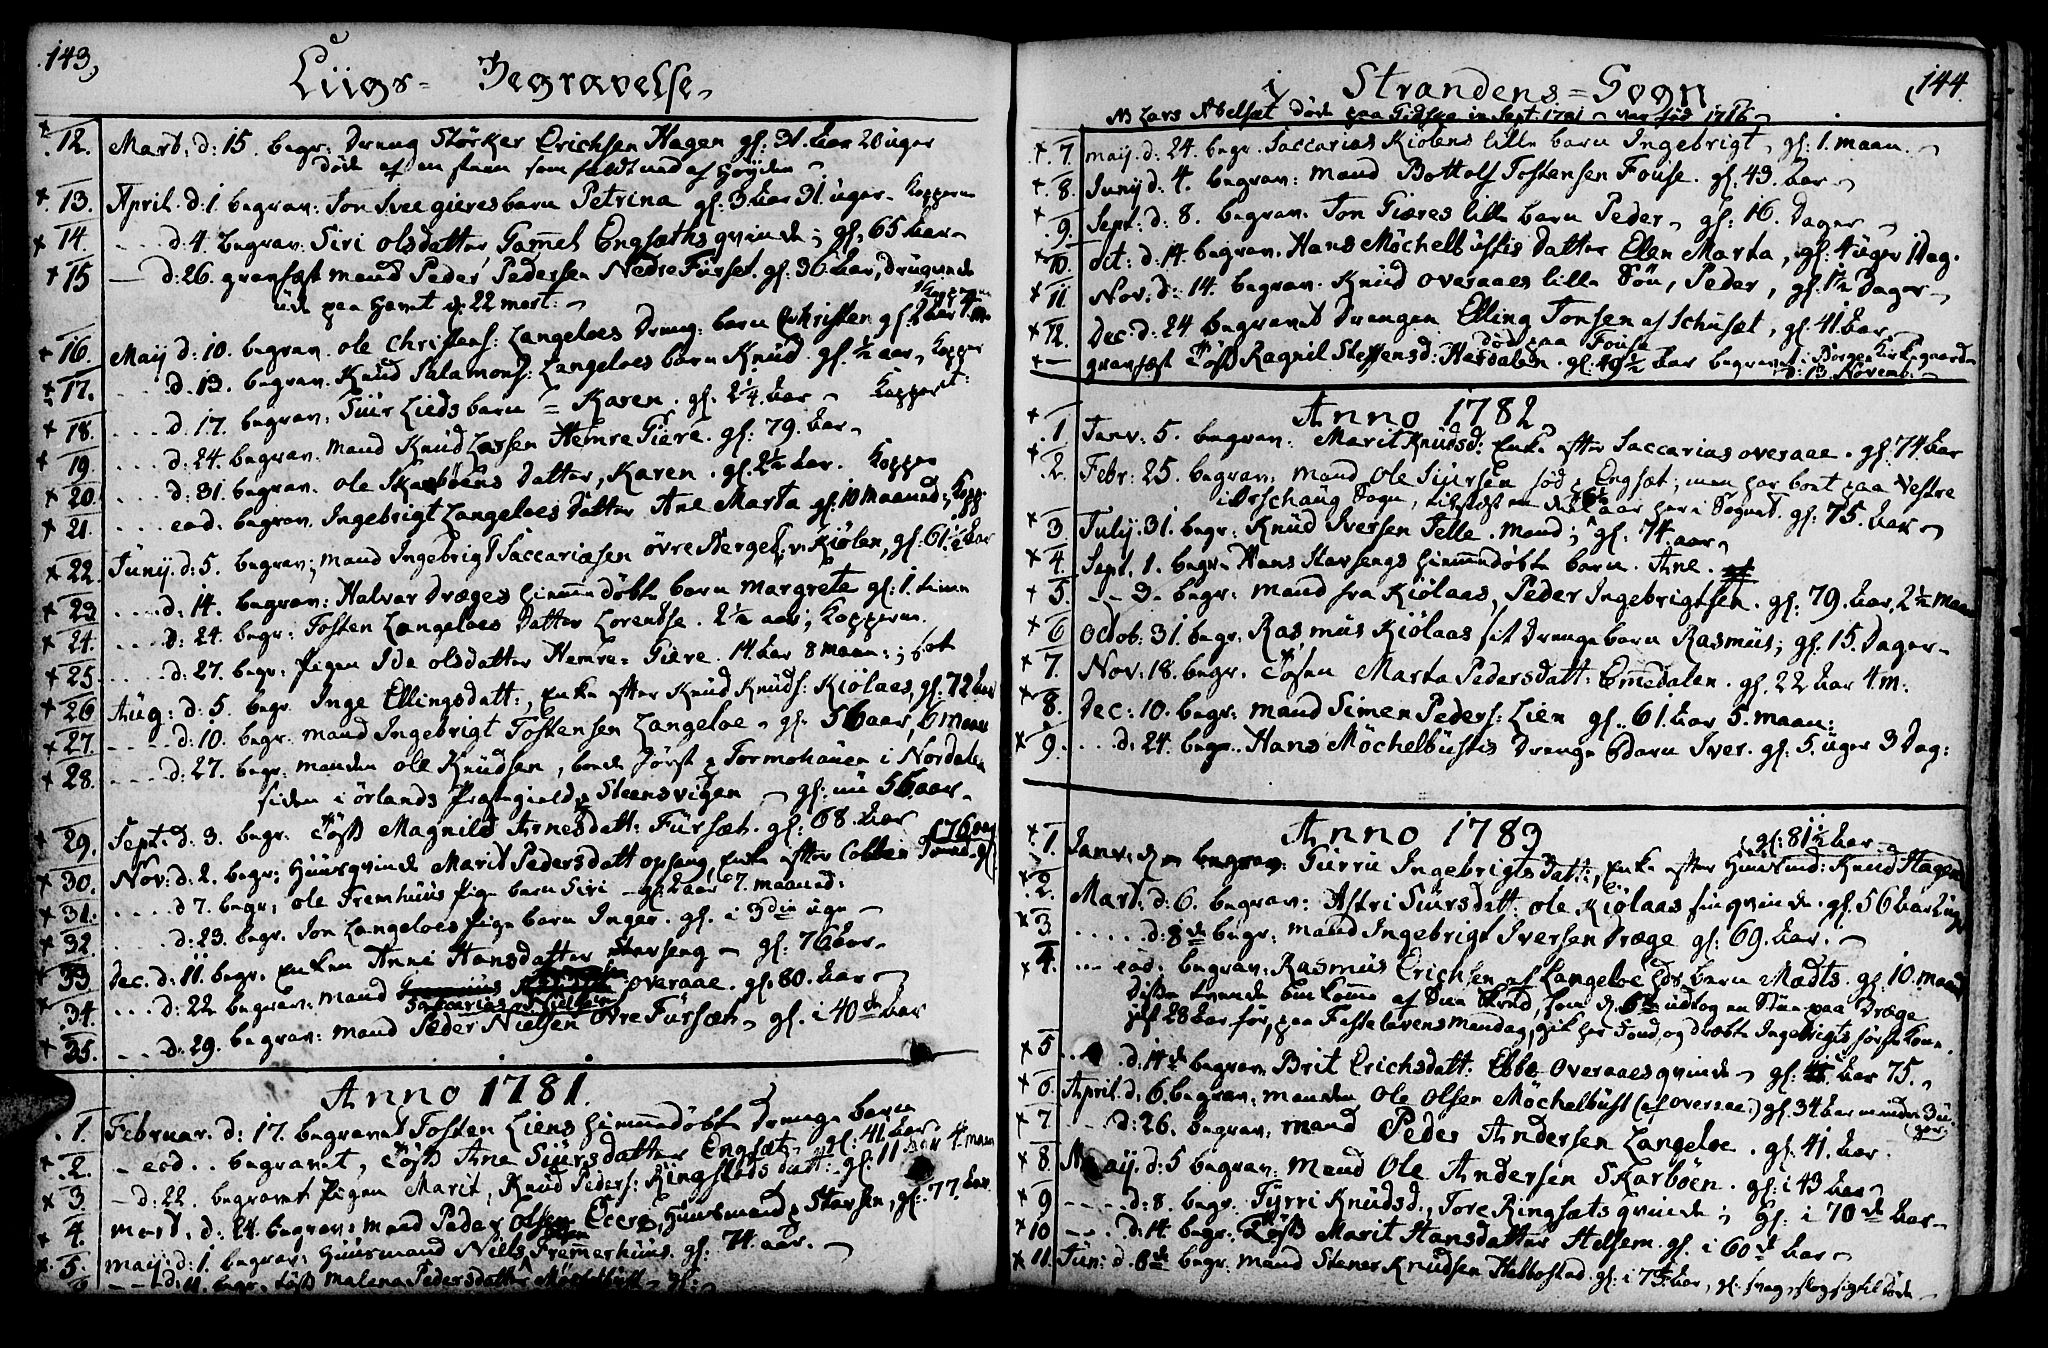 143,
Liigs- Begravelse
12. Mart. d: 15. begr: Dreng Størker Erichsen Hagen gl: 31. Aar 20 uger
døde af en steen som faldt ned af Høyden
13. April. d: 1. begrav: Jon Ivergieres barn Petrina gl: 3 Aar 31. uger. Kopperne
14. - - - d. 4. begrav: Siri olsdatter Gamel Engsæths qvinde; gl: 65 Aar
15 — d: 26. gravfæst mand Peder Pedersen Nedre Fürset. gl: 36 Aar,
ude paa Havet d: 22 mart:
16. Maij d: 10. begrav. ole Christens: Langeloes Dreng: barn Christen gl: 2 Aar 7. m.
17. - - - d. 13. begrav. Knud Salamons: Langeloes barn Knüd. gl. ½ aar, Kopper
18. - - - d. 17. begrav. Siur Lieds barn = Karen. gl: 2¼. Aar — Kopper
19. - - - d. 24. begrav. mand Knüd Larsen Hemre Giere. gl: 79. Aar
20. - - - d. 31. begrav. ole Skarbøens Datter, Karen. gl. 2½ Aar. Kopper
21. - - - eod. begrav. Ingebrigt Langeloes Datter Ane Marta gl: 10 Maaned; Kopp.
22. Junij. d: 5. begrav; mand Ingebrigt Saccariasen øvre Berge; v. Kiølen, gl: 61½ Aar
23. - - - d: 14. begrav: Halvar Dræges Hiemmedøbte barn Margrete gl: 1. time
24. - - - d: 24. begr: Tosten Langeloes Datter Lorendse. 2½ aar; Kopperne.
25. - - - d: 27. begr: Pigen Ida olsdatter Hemre= Giere. 14. Aar 8 maan:;
26. Aug: d: 5. begr. Inge Ellingsdatt:, Enke efter Knüd Knüds: Kiølaas, gl: 72 Aar
27. - - - d: 10. begr: mand Ingebrigt Tostensen Langeloe, gl. 56 aar, 6 maan
28. - - - d: 27. begr: manden ole Knüdsen, boede først p. Tormohauen i Nordalen
siden i Ørlands Præstegield p. Steensvigen — gl: nu 56. aar.
29. Sept. d. 3. begr. Tøß Magnild Arnesdatt: Fürsæt. gl: 68. Aar
30. Nov: d: 2. begr: Huusqvinde Marit Pedersdatt opsang, Enke efter
31. - - - d 7. begr: ole Fremhuus Pige barn Siri — gl: 2 aar 7. maaned:
32. - - - d: 23. begr. Jon Langeloes Pige barn Inger. gl. i 3die uge
33 Dec. d: 11. begr. Enken Anne Hansdatter Stavseng — gl: 76 Aar.
34. - - - d: 22 begrav: mand Saccarias Nielsen overaae. gl: 80. Aar
35. - - d: 29. begrav: mand Peder Nielsen Øvre Fürsæt, gl. i 40de Aar
Anno 1781.
1. Februar. d: 17. begravet Tosten Liens Hiemmedøbte Drenge barn
2. - eod. . begravet, Tøß Ane Siursdatter Engsæt, gl: 41 Aar
3. - d: 22. begravet Pigen Marit, Knud Peders: Ringstads datt: gl: 11 Aar 4. maan
4. mart. d: 24. begrav: mand Peder Olsen Huusmand p. Stavsen, gl: 77. Aar
5. maij: d: 1. begrav: Huusmand Niels Fremerhuus. gl: 74. aar.
6 - - d: 11. begr. Tøß Malena Pedersdatter Møchelbüst gl:
144.
i Strandens= Sogn
NB Lars Abelsæt døde paa Gidske in Sept. 1781 var fød 1716
7 maij. d: 24. begr. Saccarias Kiølens lille barn Ingebrigt, gl: 1. maan.
8. Junij d: 4. begrav: mand Bottolf Tostensen Fouse. gl: 43. Aar
9. Sept: d: 8. begrav. Jon Gieres lille barn Peder, gl: 16. Dager
10. oct: d: 14. begrav. Hans Möchelbüstis Datter Elen Marta, gl: 4 uger 1 Dag.
11 Nov. d: 14. begrav. Knüd overaaes lille Søn, Peder, gl: 1½ Dager
12. Dec: d: 24 begravet Drengen Elling Jonsen af Schusæt, gl: 41. Aar
død paa Fouse
gravfæst Tøß Ragnil Steffensd: Herdalen. gl: 49½ Aar begravet i Borgen Kirkegaarden
d: 13. Novemb.
Anno 1782
1 Janv: 5. begrav: Marit Knüdsd: Enke efter Saccarias overaae. gl: 74 Aar
2. Febr: 25. begrav: mand Ole Siursen fød p. Engsæt, men har boet paa Nestre
i Ørschaug Sogn, tilsidst en aar her i Sognet. gl: 75. Aar
3. July. 31. begr: Knüd Iversen Telle. mand; gl: 74. aar
4. Sept. 1. begr: Hans Stavsengs Hiemmedøbte barn. Ane.
5. - - d. begr: mand fra Kiølaas, Peder Ingebrigtsen. gl: 79. Aar, 2½ maan
6 octob: 31. begr: Rasmus Kiölaas sit Drengebarn Rasmus; gl: 15. Dager
7. Nov: 18. begr. Tøsen Marta Pedersdatt: Ømedalen. gl. 22 Aar 4. m:
8. Dec: 10. begr: mand Simen Peders: Lien gl. 61. Aar 5. maan:
9. . . d: 24. begr.. Hans Möchelbüstis Drenge Barn Iver. gl: 5. uger 3 Dag:
Anno 1783
gl: 81½ Aar
1. Janv: begrav: Gurru Ingebrigts Datt:, Enke efter Huusmd: Knud Hagen
2. Mart: d: 6. begrav: Astri Siursdatt: ole Kiölaas sin qvinde. gl: 56 Aar
3 . . . . . d: 8de begr: mand Ingebrigt Iversen Dræge gl: 69. Aar.
4. - - eod: begrav: Rasmus Erichsen af Langeloe barn Madts. gl: 10. maan
Disse trende omkomme af Snee Skred, som d. 6te udtog en Stue paa Dræge
just 28 Aar for, paa Fastelavens mandag, gik her Fond, og dræbte Ingebrigts første Kone.
5 . . . d. 14de begrav. Brit Erichsdatt: Ebbe Overaaes qvinde gl: Aar 75.
6 April. d: 6. begrav: manden Ole Olsen Möchelbüst (af overaae.) gl: 34 Aar minder 3 u
ger.
7 - - - d: 26. begrav: mand Peder Andersen Langeloe. gl: 41. Aar.
8 Maij. d: 5 begrav: mand Ole Andersen Skarbøen. gl: i 43 Aar
9 - - - - d: 8. begr. Gyrri Knüdsd., Tore Ringsæts qvinde; gl: i 70de Aar
10 - - - d: 14 begr: Tøß Marit Hansdatter Stelsem. gl. i 60de Aar
11. Jun: d. 6te begr: mand Stener Knüdsen Helbostad. gl: i 75. Aar,